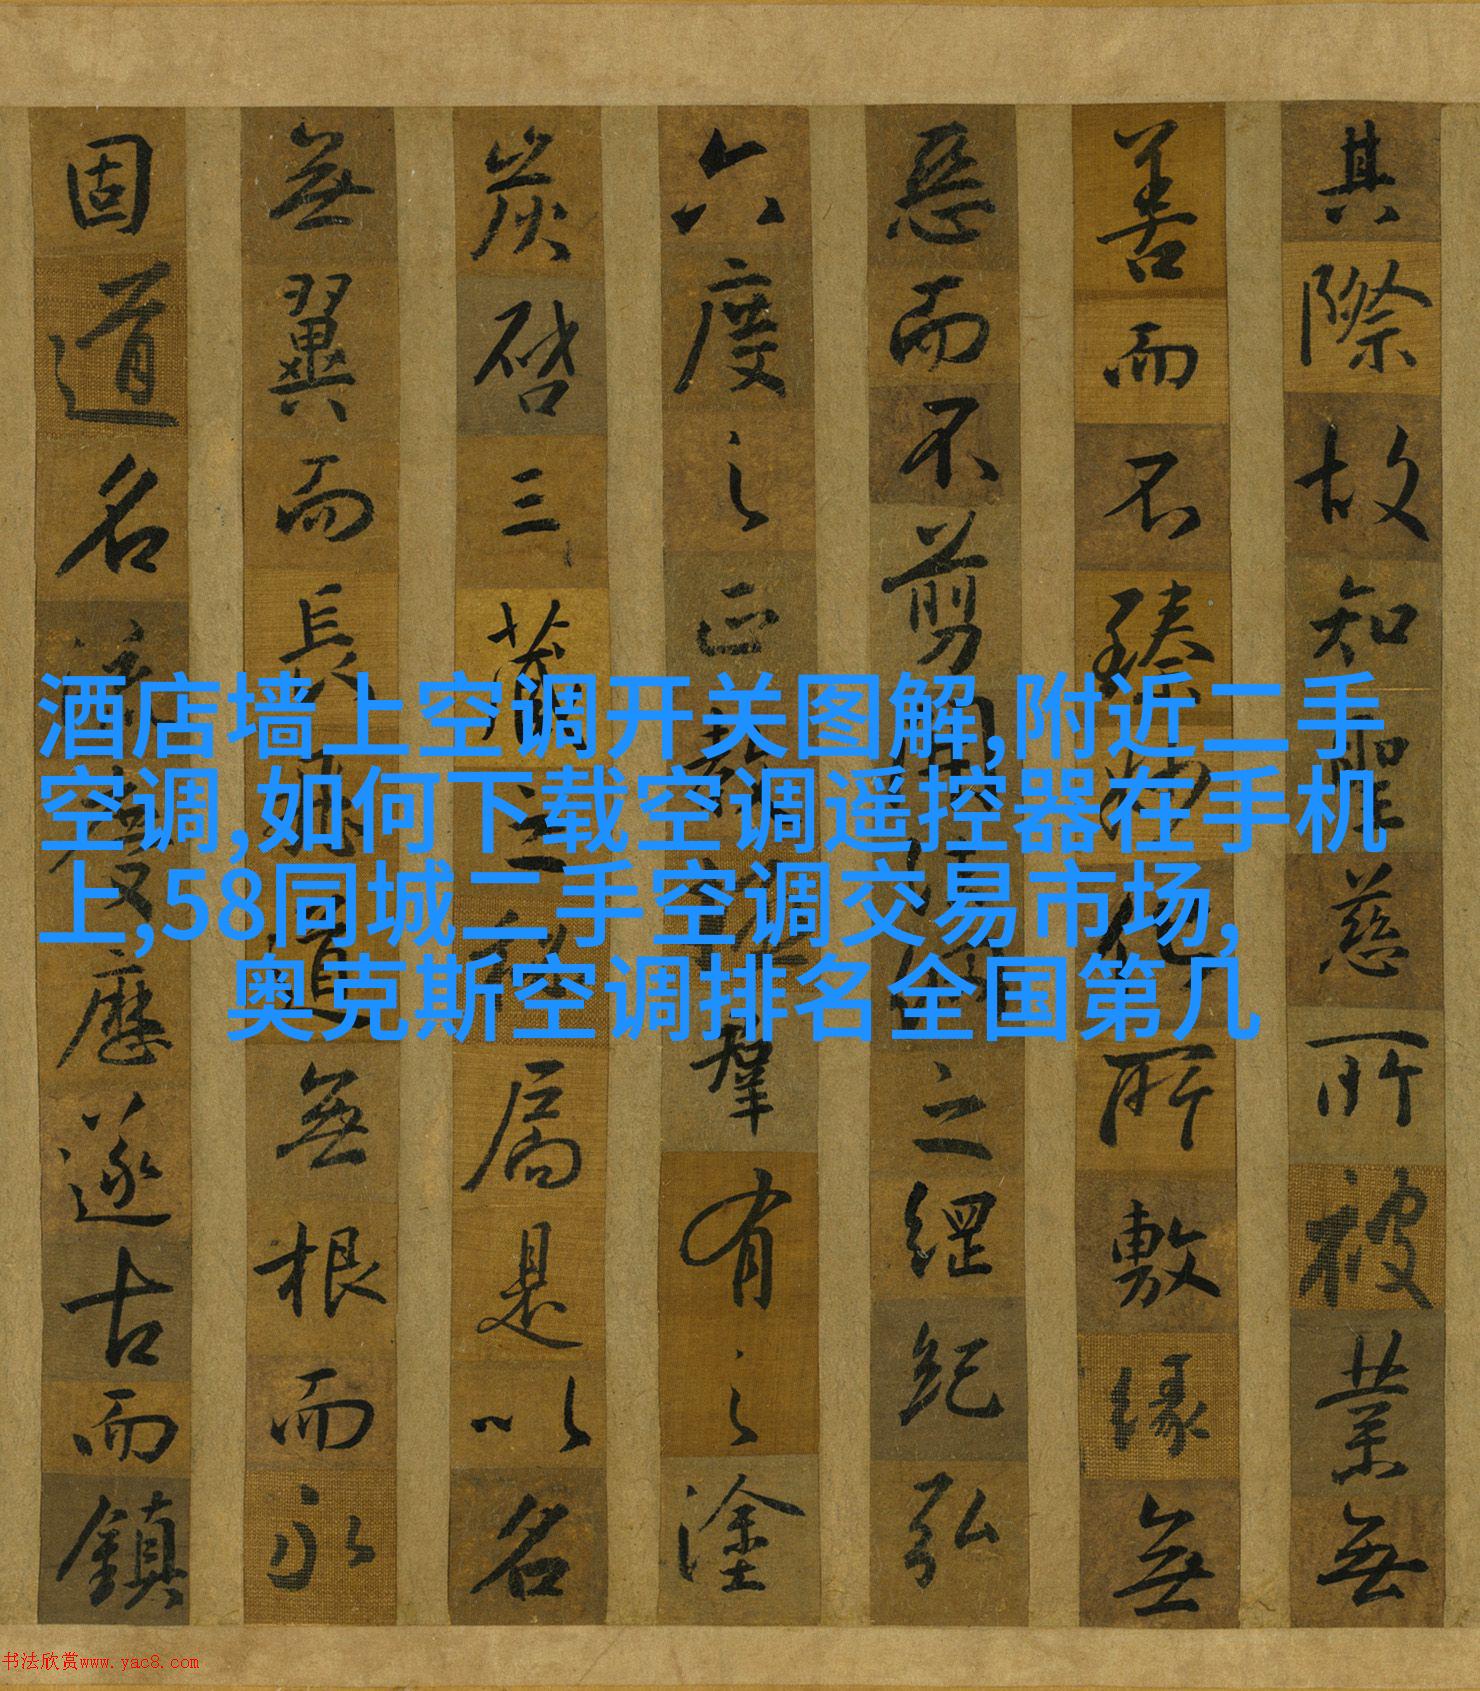 其際故知聖慈所被業無
善而不臻妙化所敷緣無
惡而不剪開法網之綱紀弘
六度之正教拯羣有之塗
炭啓三藏之秘扃是以名
無翼而長飛道無根而永
固道名流慶歷遂古而鎮
酒店墙上空调开关图解,附近二手
空调,如何下载空调遥控器在手机
上,58同城二手空调交易市场,
奥克斯空调排名全国第几
书法欣赏www.yac8.com